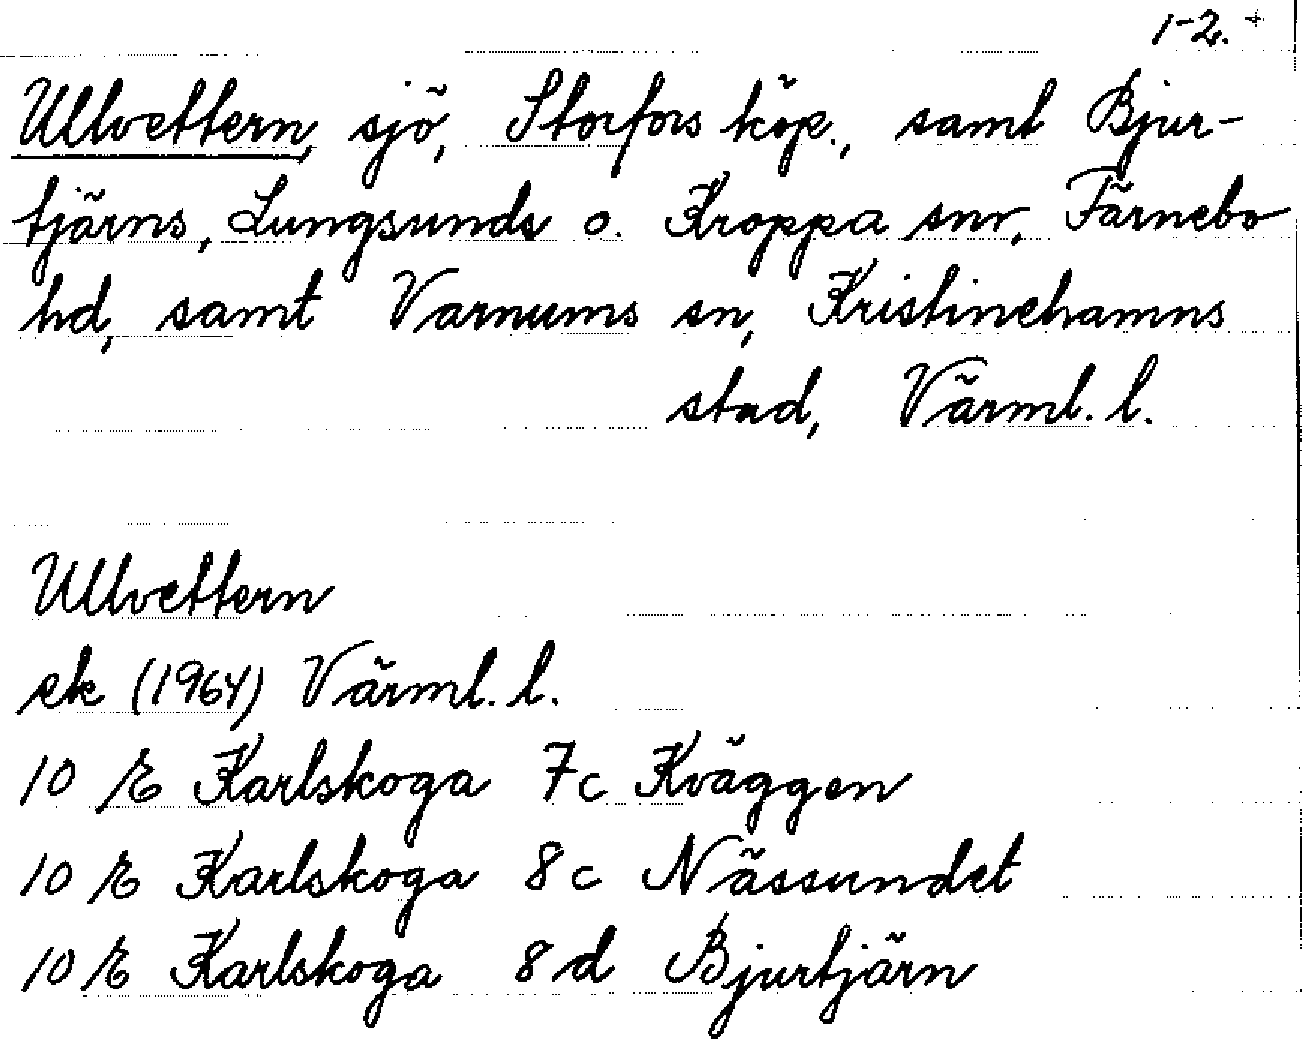 1-2. +
Ullvettern, sjö, Storfors köp., samt Bjur-
tjärns, Lungsunds o. Kroppa snr, Färnebo
hd, samt Varnums sn, Kristinehamns
stad, Värml. l.
Ullvettern
ek (1964) Värml. l.
10 E Karlskoga 7c Kväggen
10 E Karlskoga 8c Nässundet
10 E Karlskoga 8d Bjurtjärn